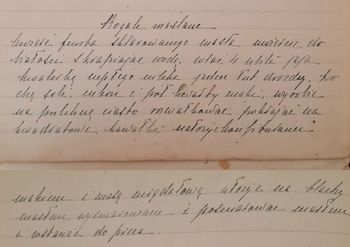 Rogale maślane
ćwierć funta sklarowanego masła uwiercić do
białości skrapiając wodą, wlać 4 ubite jaja
kwaterkę ciepłego mleka jeden łut drożdży, tro
chę soli, cukru i pół kwarty mąki, wyrobić
na pulchne ciasto rozwałkować pokrajać na
kwadratowe kawałki nałożyć konfiturami
makiem i masą migdałową ułożyć na blachy
masłem wysmarowane i posmarować masłem
i wstawić do pieca